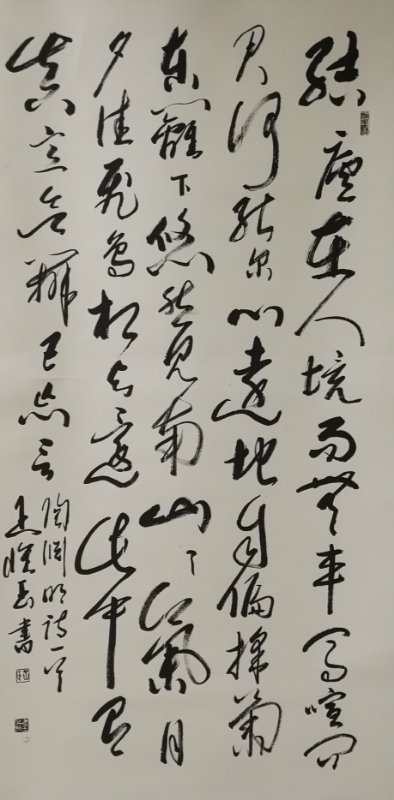 結廬在人境而無車馬喧問
君何能爾心遠地自偏採菊
東籬下悠然見南山々氣日
夕佳飛鳥相與還此中有
真意欲辨已忘言
陶淵明詩一首
書